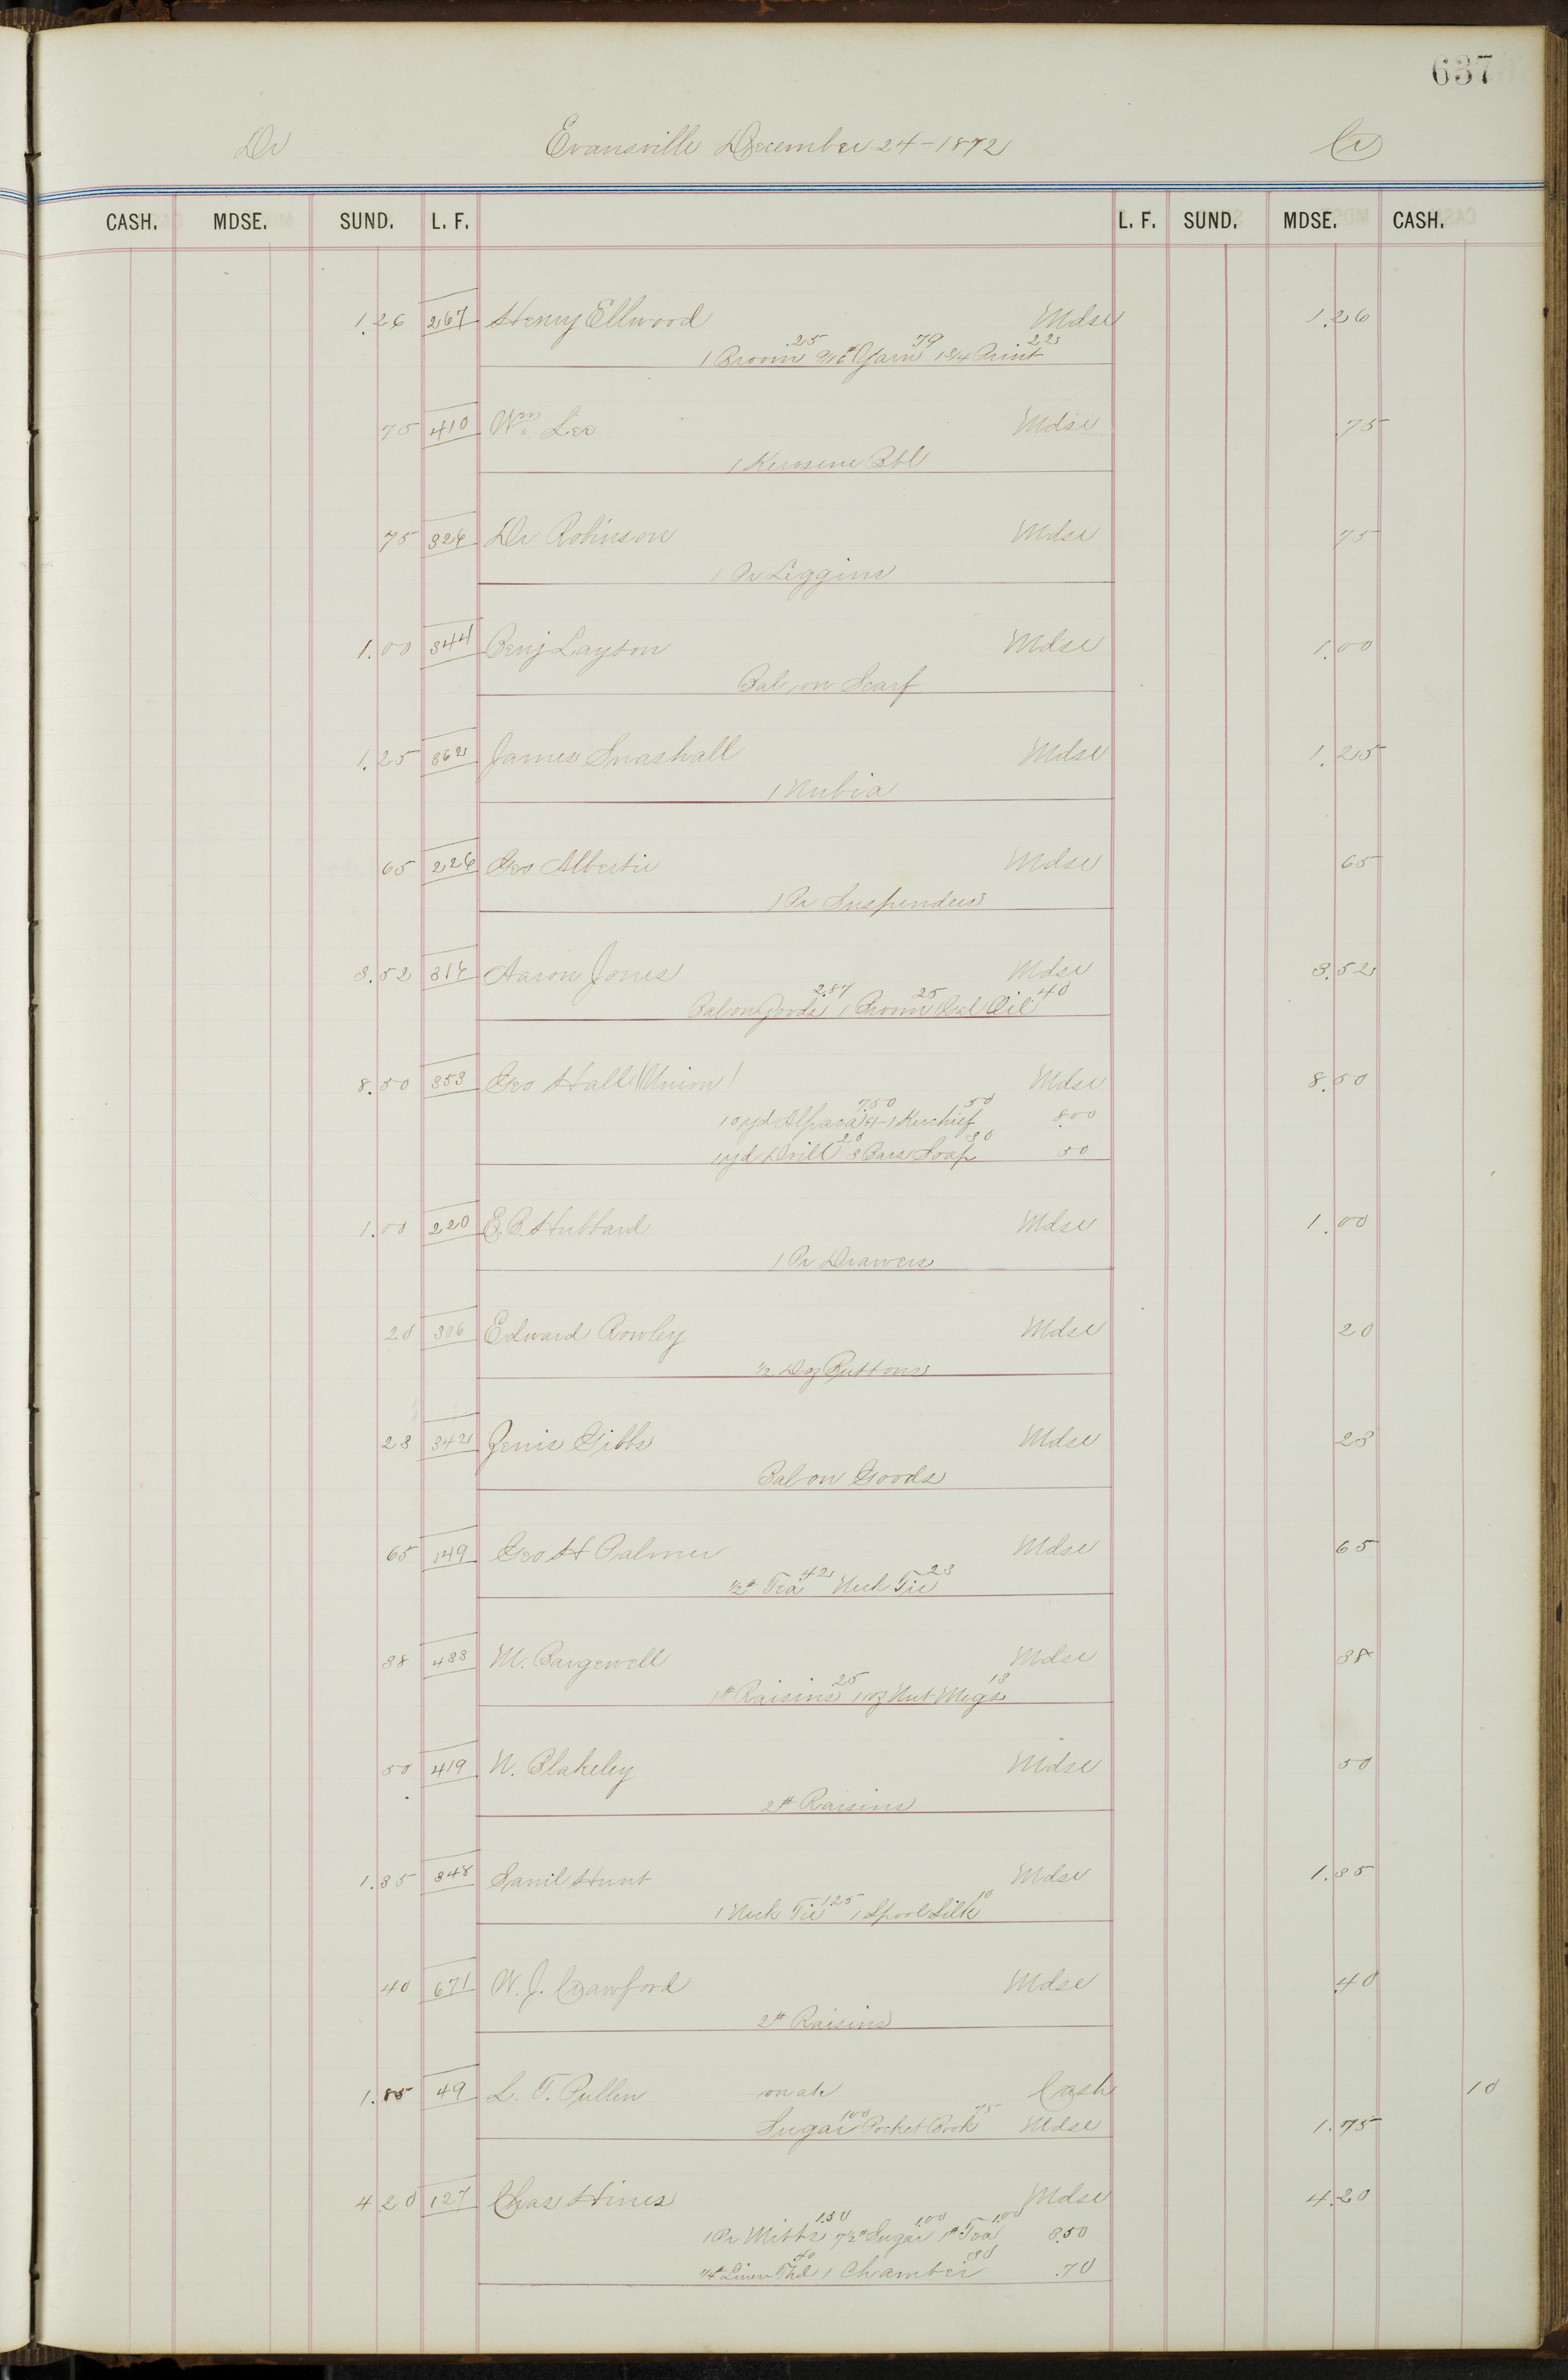 637
Dr Evansville December 24-1872 Cr
CASH. MDSE. SUND. L. F. L. F. SUND. MDSE. CASH.
1.26 267 Henry Ellwood Mdse 1.26
1 Broom .25 9/16 # Yarn .79 1 3/4 Print 22
75 410 Wm Lee Mdse .75
1 Kerosene Bbl
75 326 Dr Robinson Mdse 75
1 Pr Leggins
1.00 344 Benj Layton Mdse 1.00
Bal on Scarf
1.25 362 James Snashall Mdse 1.25
1 Nubia
65 226 Geo Albertie Mdse 65
1 Pr Suspenders
3.52 316 Aaron Jones Mdse 3.52
Bal on Goods 2.87 1 Broom 25 1 Gal Oil 40
8.50 353 Geo Hall (Union) Mdse 8.50
10 yd Alpaca 7.50 1 Kerchief 50 8.00
1 yd Drill 20 3 Bars Soap 30 50
1.00 220 E. B. Hubbard Mdse 1.00
1 Pr Drawers
20 306 Edward Rowley Mdse 20
1/2 Doz Buttons
23 342 Jenis Gibbs Mdse 23
Bal on Goods
65 149 Geo H Palmer Mdse 65
1/2 # Tea 42 Neck Tie 23
38 433 M. Bargewell Mdse 38
1 # Raisins 25 1 oz Nut Megs 13
50 419 N. Blakeley Mdse 50
2 # Raisins
1.35 348 Danil Hunt Mdse 1.35
1 Neck Tie 1.25 1 Spool Silk 10
40 671 W. J. Crawford Mdse .40
2 # Raisins
1.85 49 L. T. Pullen on a/c Cash 10
Sugar 1.00 Pocket Book 75 Mdse 1.75
4.20 127 Chas Hines Mdse 4.20
1 Pr Mitts 1.50 7 1/2 # Sugar 1.00 1 # Tea 1.00 3.50
1/4 # Linen Thd .40 1 Chamber 30 .70